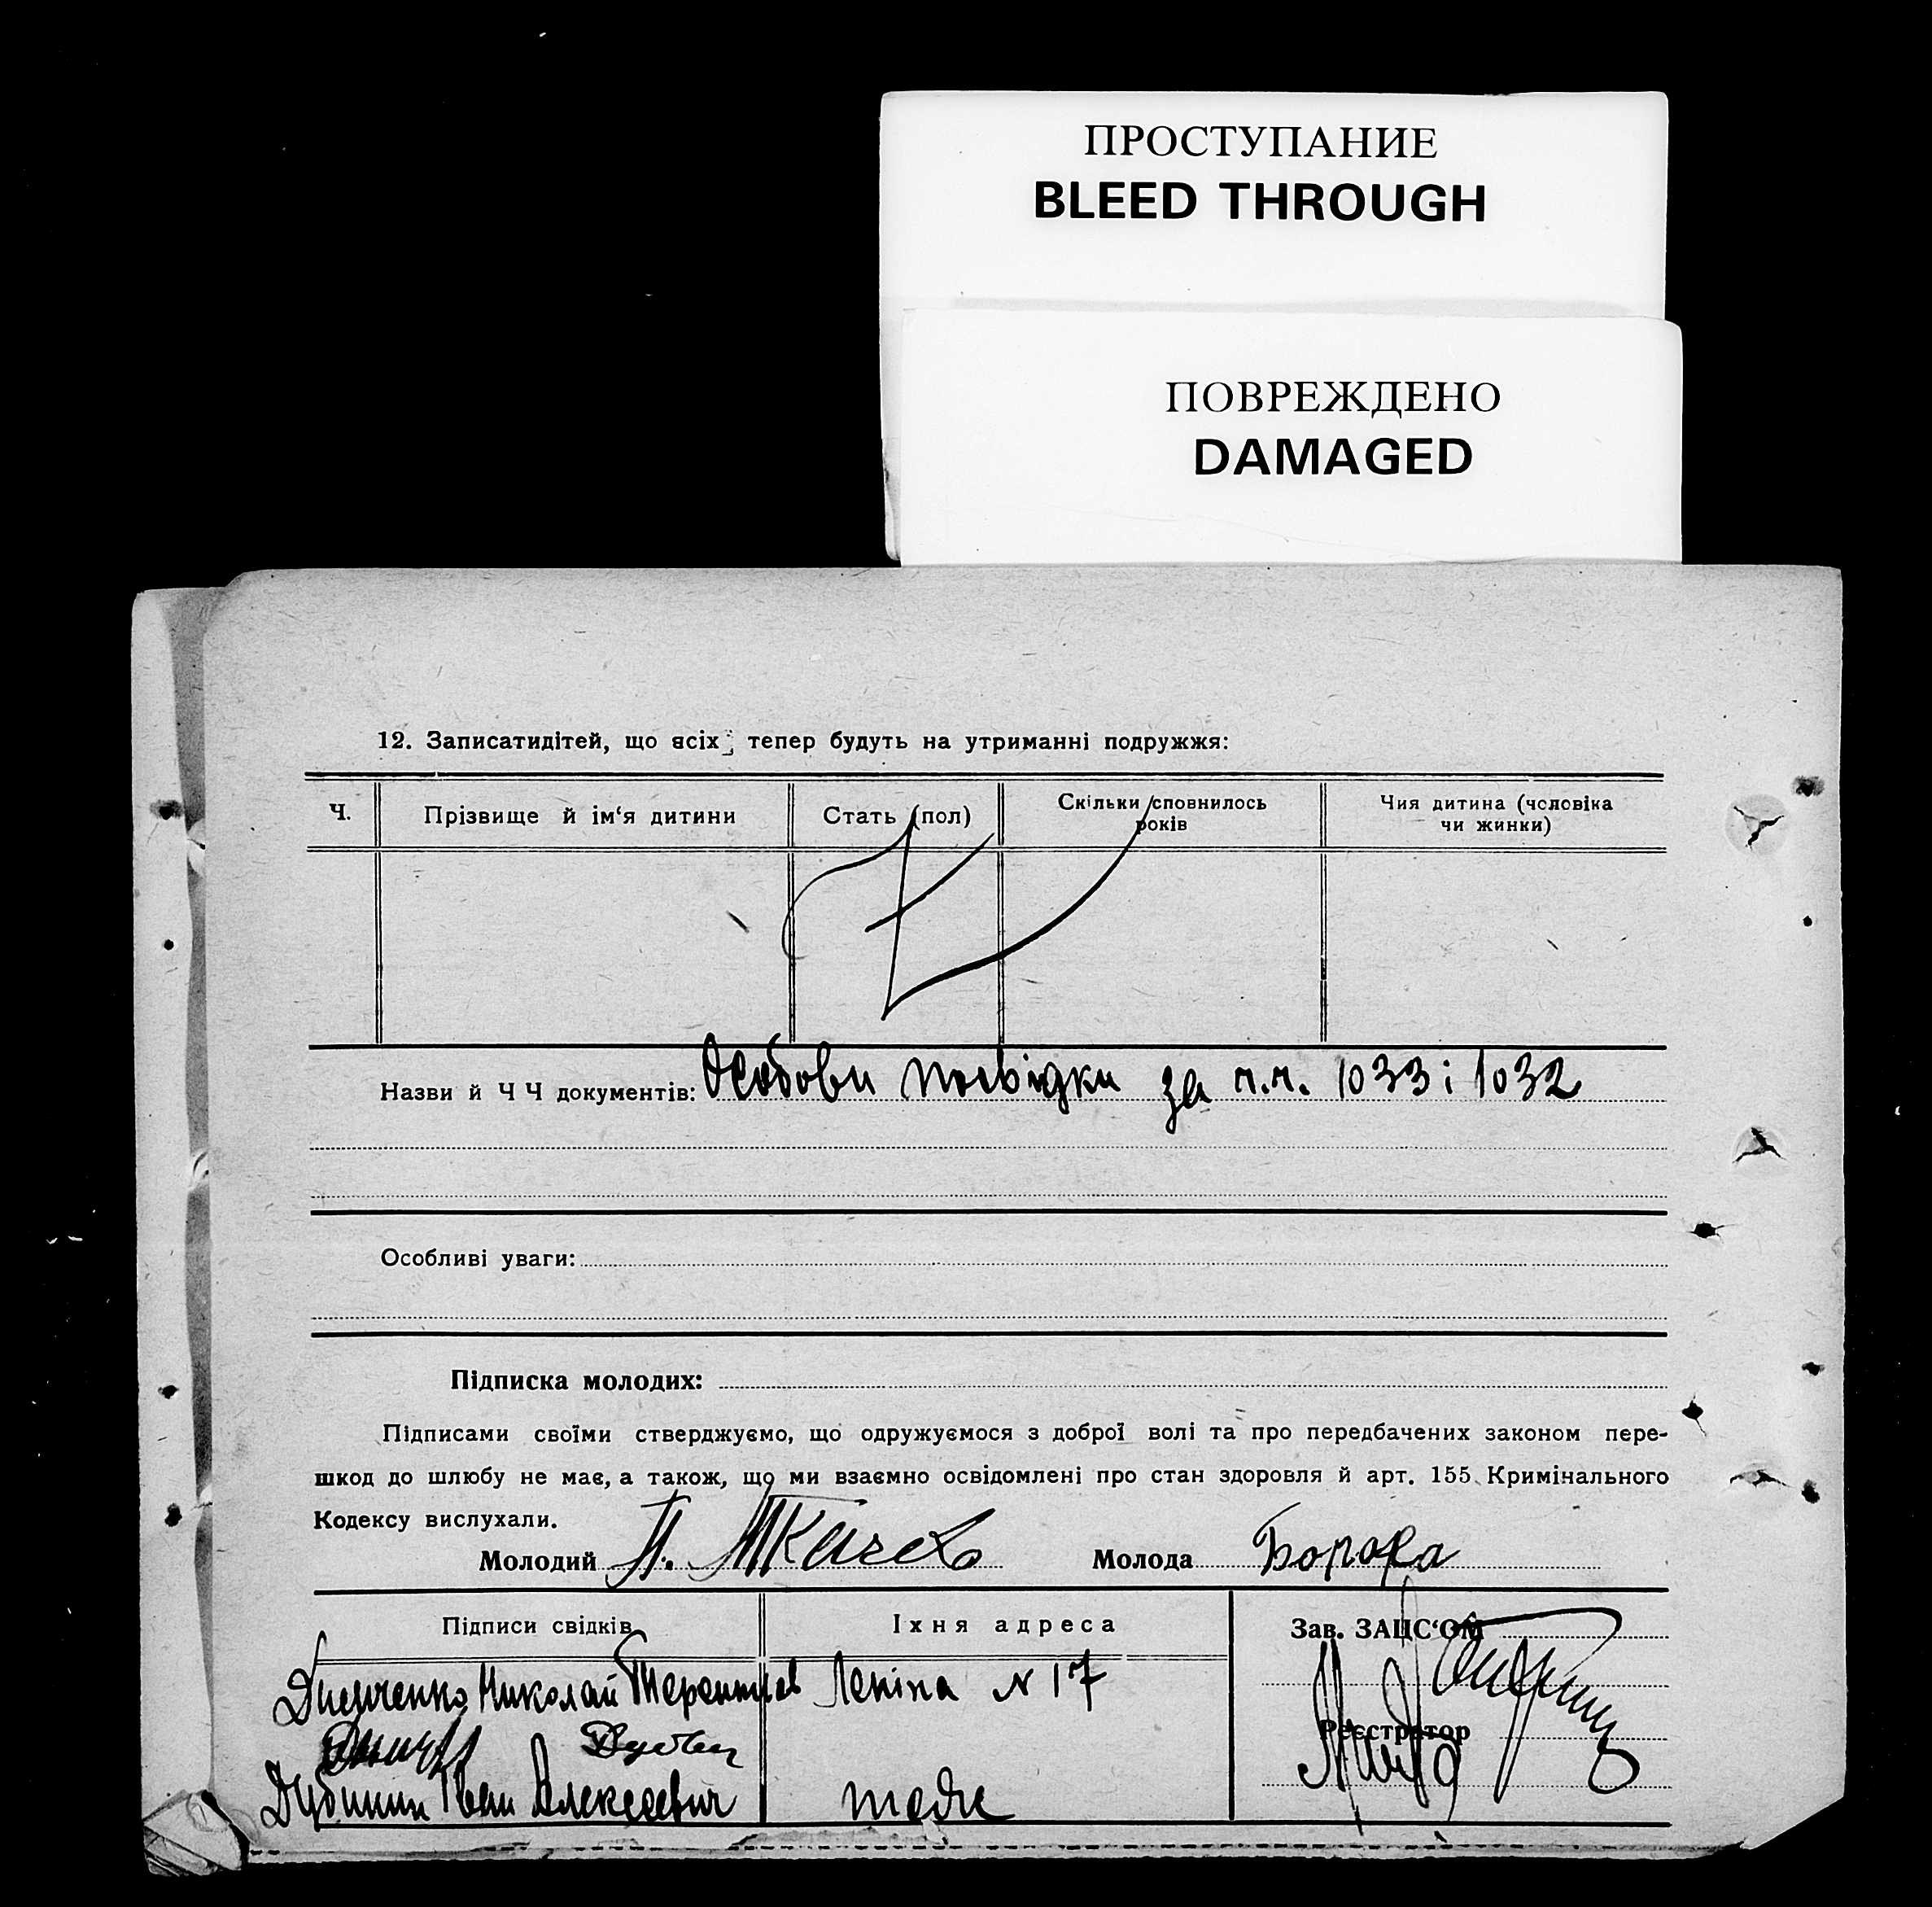 ПРОСТУПАНИЕ
BLEED THROUGH
ПОВРЕЖДЕНО
DAMAGED
12. Записатидітей, що всіх тепер будуть на утриманні подружжя:
Ч.
Прізвище й ім‘я дитини
Стать (пол)
Скільки сповнилось
років
Чия дитина (чоловіка
чи жинки)
Назви й Ч Ч документів: Особови посвідки за ч.ч. 1033 і 1032
Особливі уваги:
Підписка молодих:
Підписами своїми стверджуємо, що одружуємося з доброї волі та про передбачених законом пере-
шкод до шлюбу не має, а також, що ми взаємно освідомлені про стан здоровля й арт. 155 Кримінального
Кодексу вислухали.
Молодий
Молода
Підписи свідків
Їхня адреса
Зав. ЗАЦС‘ОМ
Николай Ленiна N 17
Реєстратор
Дубинин Іван Алексеевич тоже